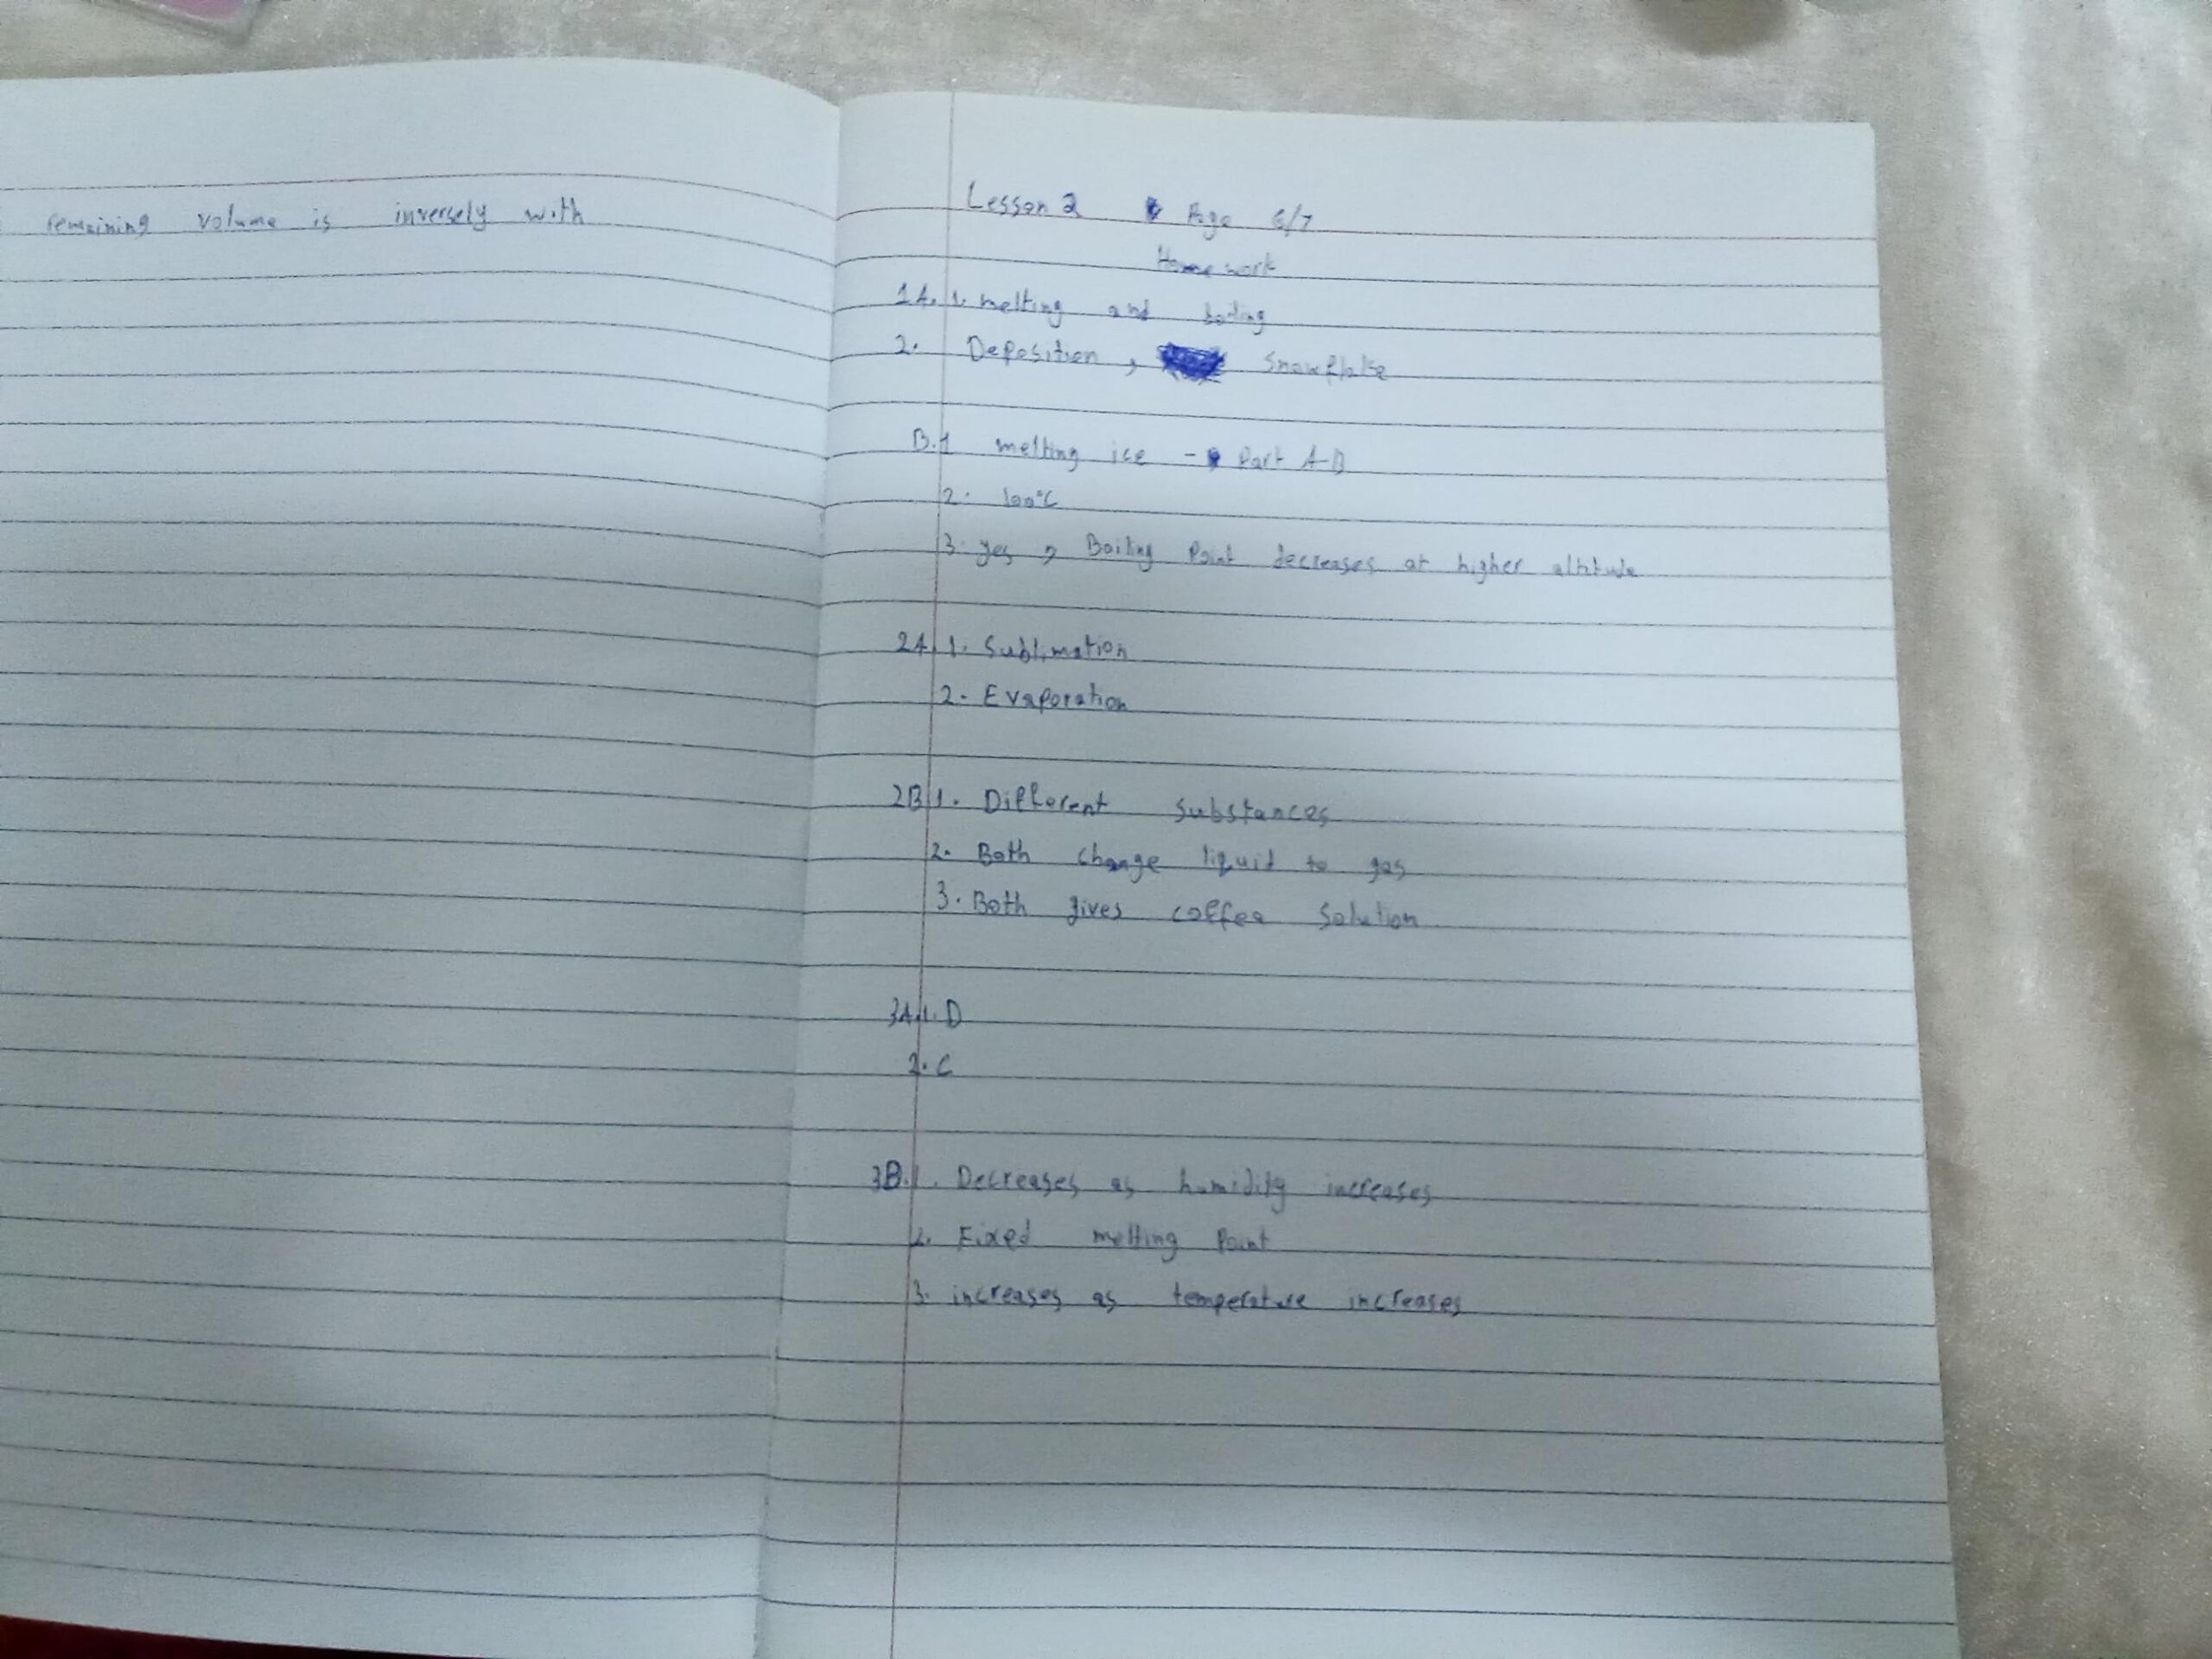 remaining volume is inversely with
Lesson 2 Page 6/7
Homework
1A. 1. melting and boiling
2. Deposition, Snowflake
B.1 melting ice - Part A-B
2. 100°C
3. yes, Boiling Point decreases at higher altitude
2A 1. Sublimation
2. Evaporation
2B 1. Different substances
2. Both change liquid to gas
3. Both gives coffee solution
3A.1. D
2. C
3B.1. Decreases as humidity increases
2. Fixed melting Point
3. increases as temperature increases